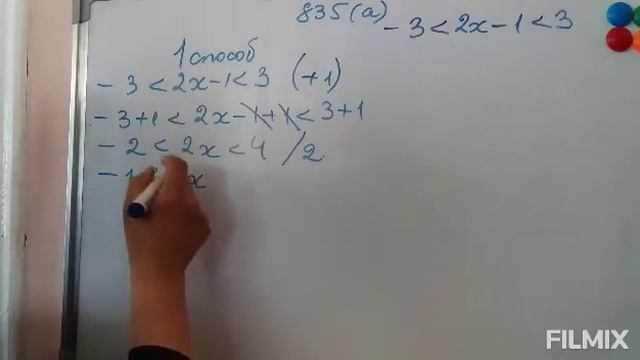 835(а) - 3 < 2x - 1 < 3
1 способ
- 3 < 2x - 1 < 3 (+1)
- 3 + 1 < 2x - 1 + 1 < 3 + 1
- 2 < 2x < 4 /2
- 1 x
FILMIX